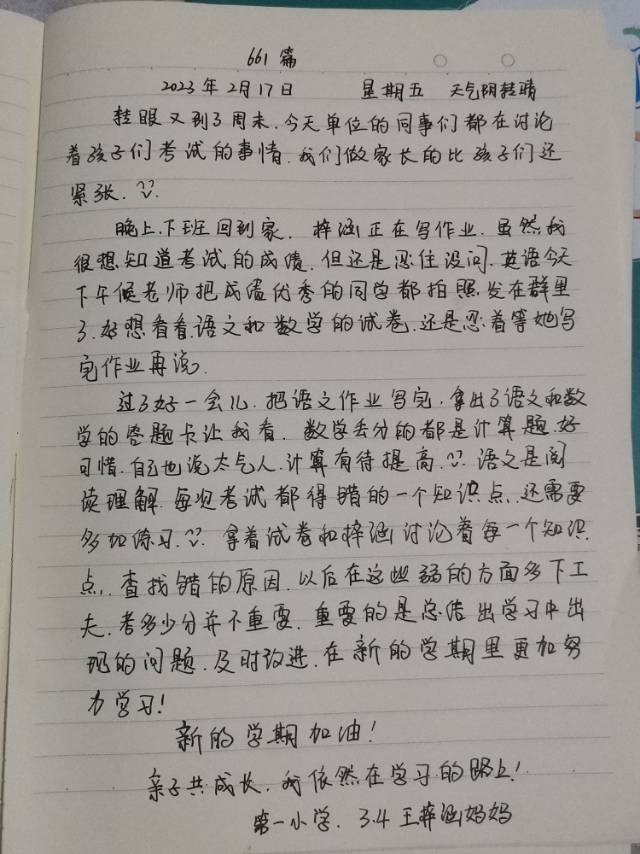 661篇
2023年2月17日 星期五 天气阴转晴
转眼又到了周末.今天单位的同事们都在讨论
着孩子们考试的事情.我们做家长的比孩子们还
紧张.
晚上.下班回到家.梓涵正在写作业.虽然我
很想知道考试的成绩.但还是忍住没问.英语今天
下午候老师把成绩优秀的同学都拍照发在群里
了.好想看看语文和数学的试卷.还是忍着等她写
完作业再说.
过了好一会儿.把语文作业写完.拿出了语文和数
学的答题卡让我看.数学丢分的都是计算题.好
可惜.自己也说太气人.计算有待提高.语文是阅
读理解.每次考试都得错的一个知识点.还需要
多加练习.拿着试卷和梓涵讨论着每一个知识
点.查找错的原因.以后在这些弱的方面多下工
夫.考多少分并不重要.重要的是总结出学习中出
现的问题.及时改进.在新的学期里更加努
力学习!
新的学期加油!
亲子共成长.我依然在学习的路上!
第一小学.3.4王梓涵妈妈